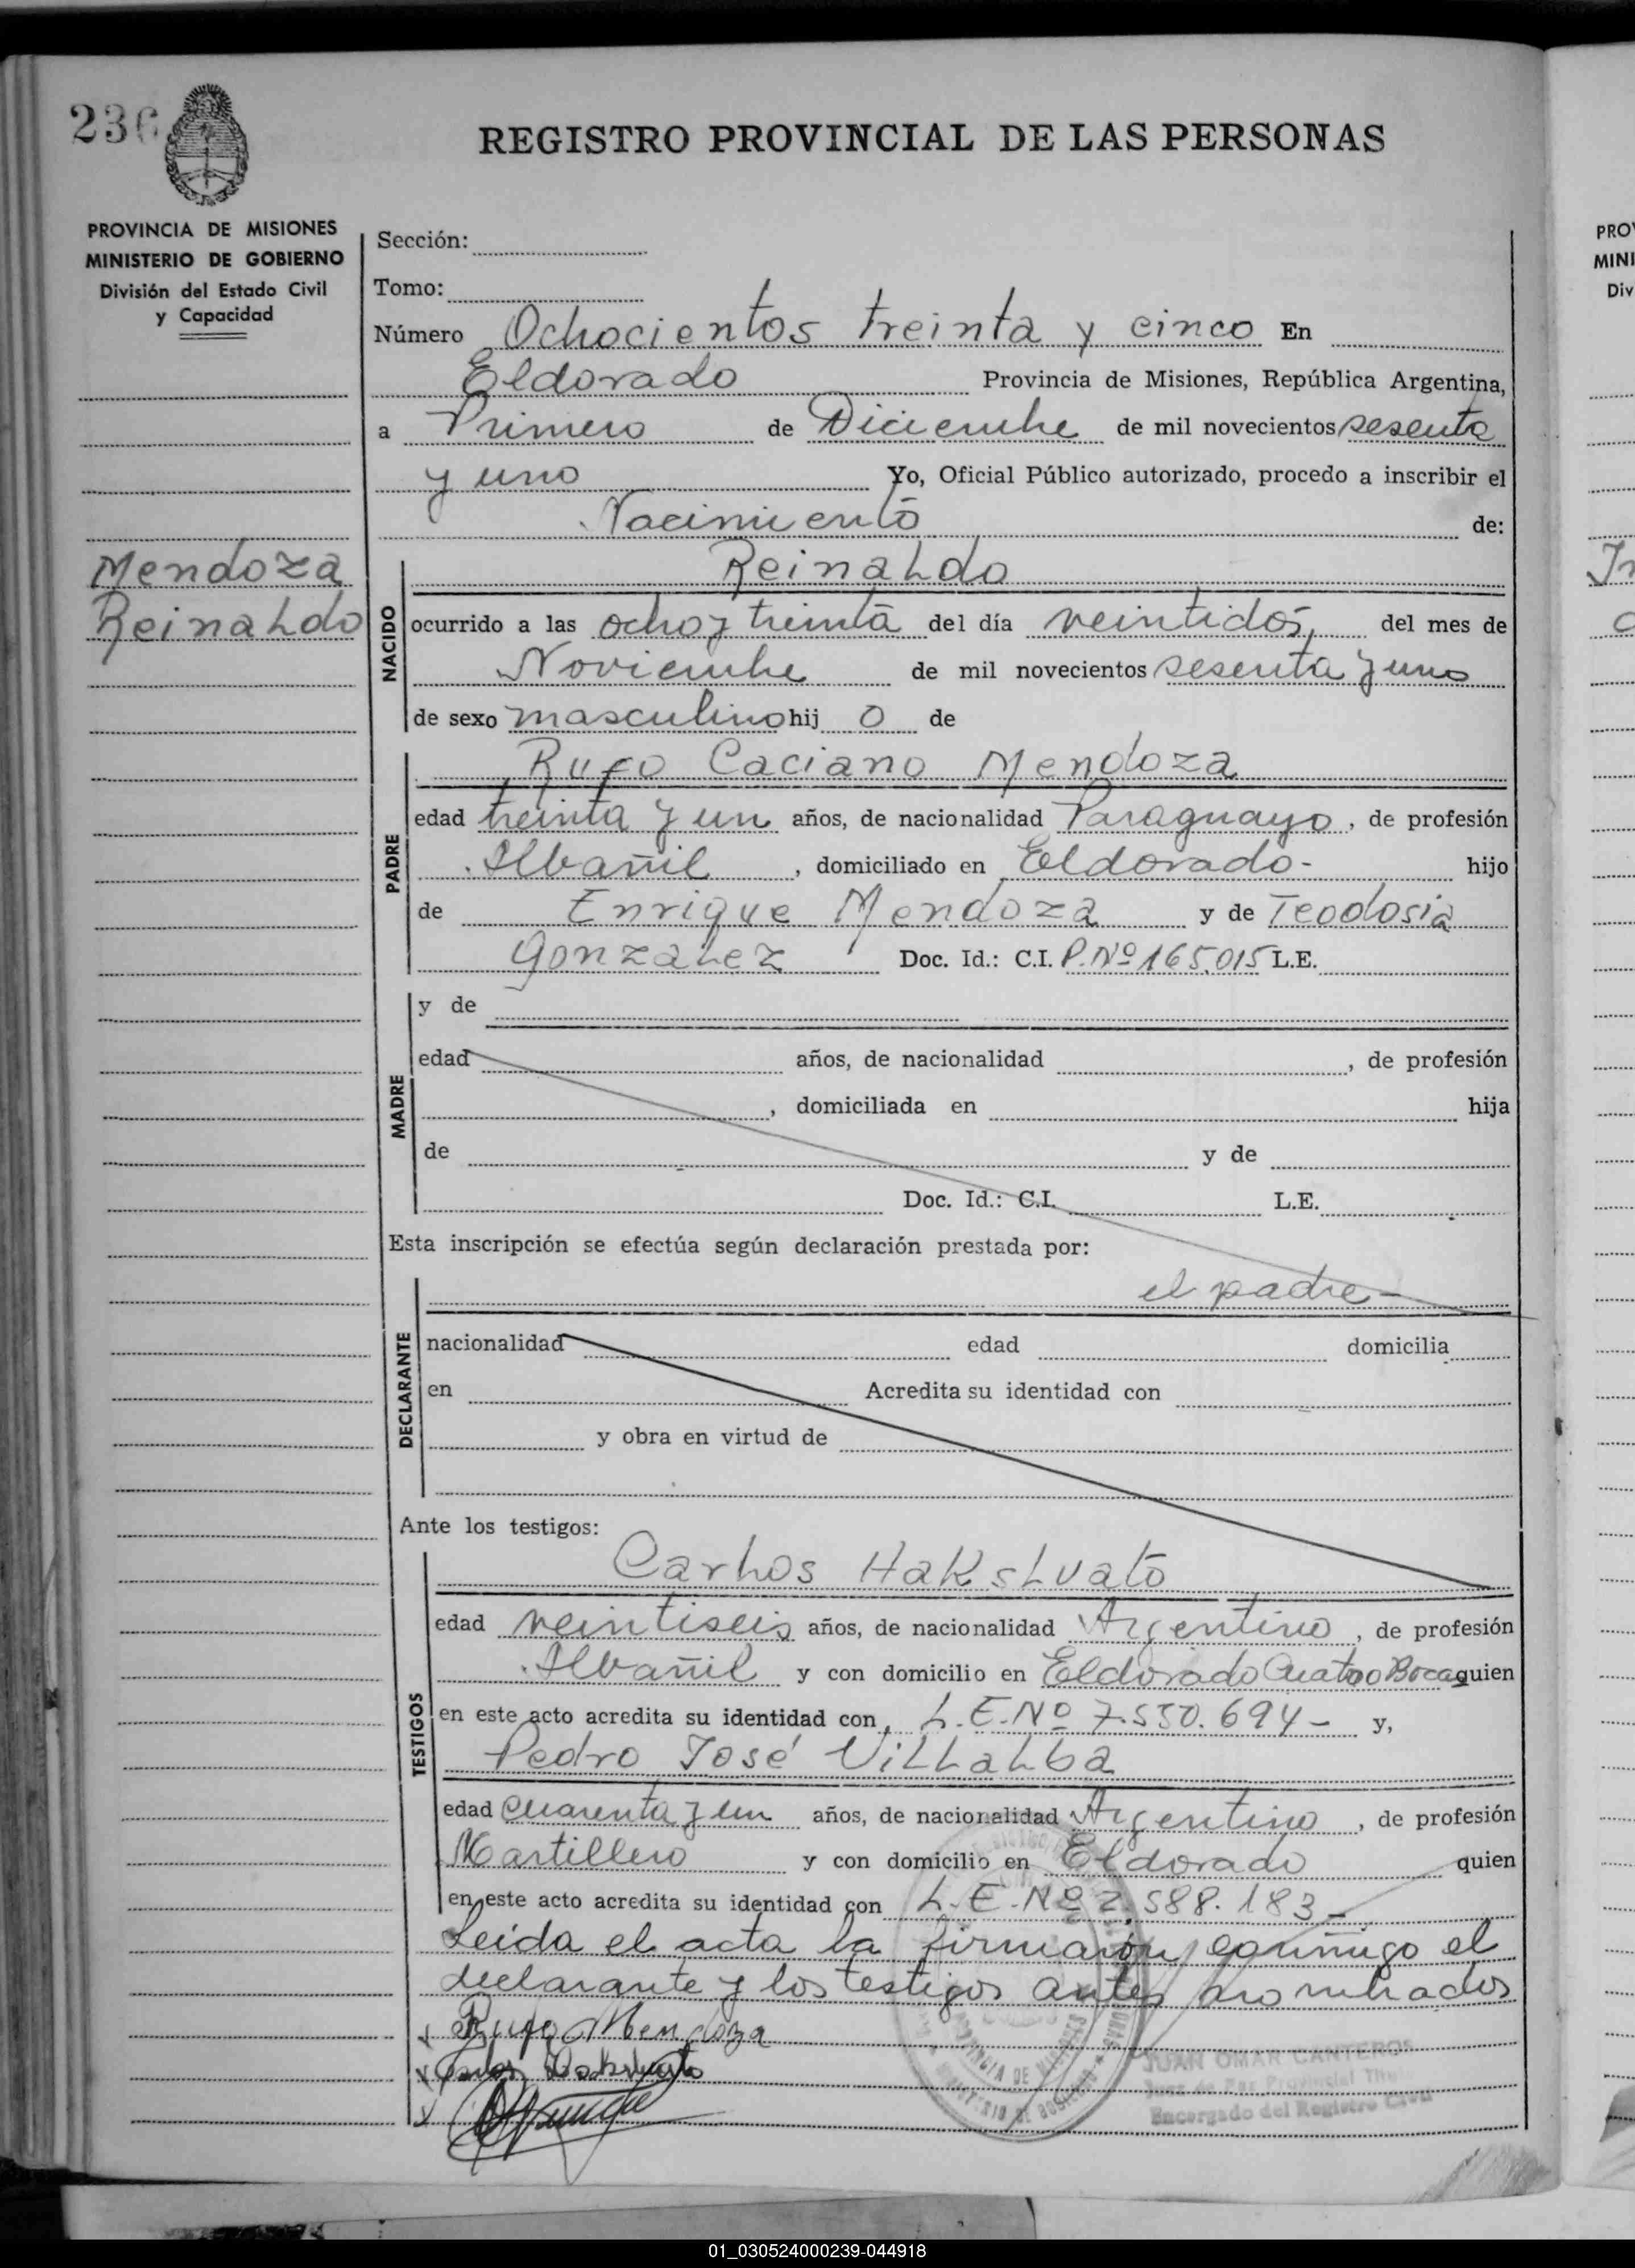 236
REGISTRO PROVINCIAL DE LAS PERSONAS
PROVINCIA DE MISIONES
MINISTERIO DE GOBIERNO
División del Estado Civil
y Capacidad
Sección:
Tomo:
Número Ochocientos treinta y cinco En
Eldorado Provincia de Misiones, República Argentina,
a Primero de Diciembre de mil novecientos sesenta
y uno Yo, Oficial Público autorizado, procedo a inscribir el
Nacimiento de:
Mendoza
Reinaldo
NACIDO
Reinaldo
ocurrido a las ocho y treinta del día veintidós, del mes de
Noviembre de mil novecientos sesenta y uno
de sexo masculino hij o de
PADRE
Rufo Caciano Mendoza
edad treinta y un años, de nacionalidad Paraguayo, de profesión
Albañil, domiciliado en Eldorado- hijo
de Enrique Mendoza y de Teodosia
Gonzalez Doc. Id.: C.I. P.Nº 165.015 L.E.
MADRE
y de
edad años, de nacionalidad , de profesión
, domiciliada en hija
de y de
Doc. Id.: C.I. L.E.
Esta inscripción se efectúa según declaración prestada por:
el padre-
DECLARANTE
nacionalidad edad domicilia
en Acredita su identidad con
y obra en virtud de
Ante los testigos:
TESTIGOS
Carlos Haksluato
edad veintiseis años, de nacionalidad Argentino, de profesión
Albañil y con domicilio en Eldorado Cuatro Bocas quien
en este acto acredita su identidad con, L.E.Nº 7.550.694- y,
Pedro José Villalba
edad cuarenta y un años, de nacionalidad Argentino, de profesión
Martillero y con domicilio en Eldorado quien
en este acto acredita su identidad con L.E.Nº 2.588.183-
Leída el acta la firmaron conmigo el
declarante y los testigos antes nombrados
Rufo Mendoza
JUAN OMAR CANTEROS
Juez de Paz Provincial Titul
Encargado del Registro Civil
PROVINCIA DE MISIONES
PRO
MINI
Div
01_030524000239-044918